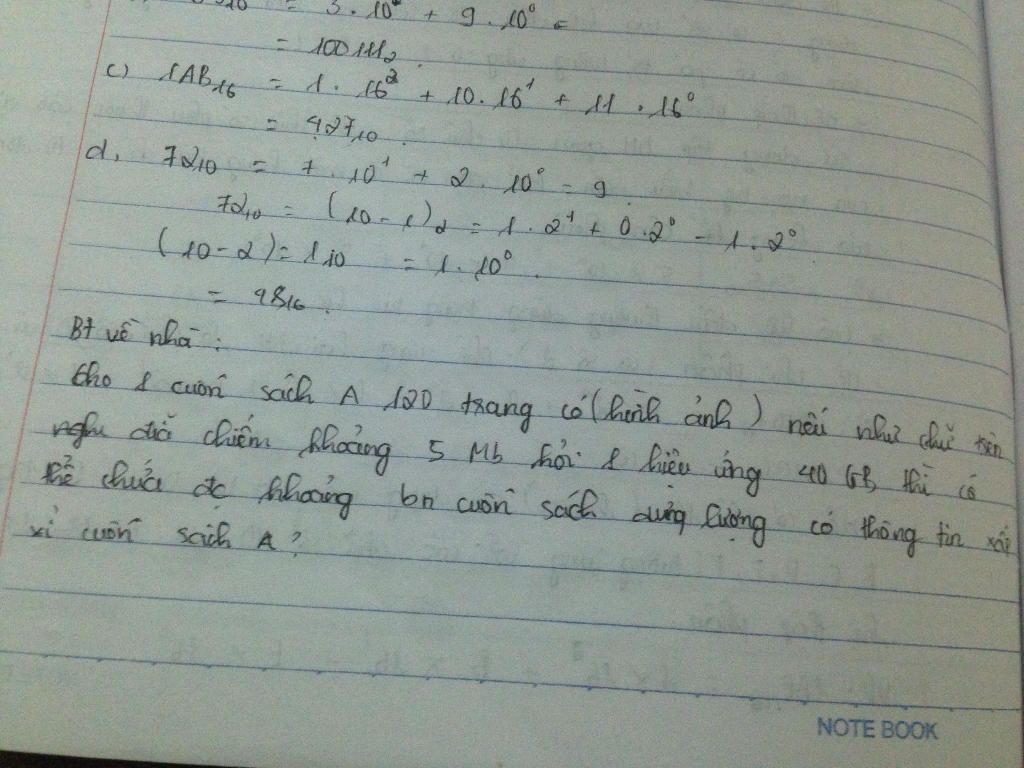 = 3 . 10¹ + 9 . 10⁰ =
= 100111₂ .
c) 1AB₁₆ = 1 . 16² + 10 . 16¹ + 11 . 16⁰
= 427₁₀ .
d, 72₁₀ = 7 . 10¹ + 2 . 10⁰ = 9 .
72₁₀ = (10 - 1)₂ = 1 . 2¹ + 0 . 2⁰ - 1 . 2⁰ .
(10 - 2) = 1₁₀ = 1 . 10⁰ .
= 48₁₆ .
Bt về nhà :
Cho 1 cuốn sách A 120 trang có (hình ảnh) nếu như chữ trên
đĩa chiếm khoảng 5 Mb hỏi 1 hiệu ứng 40 GB thì có
thể chứa đc khoảng bn cuốn sách dung lượng có thông tin xấp
xỉ cuốn sách A ?
NOTE BOOK